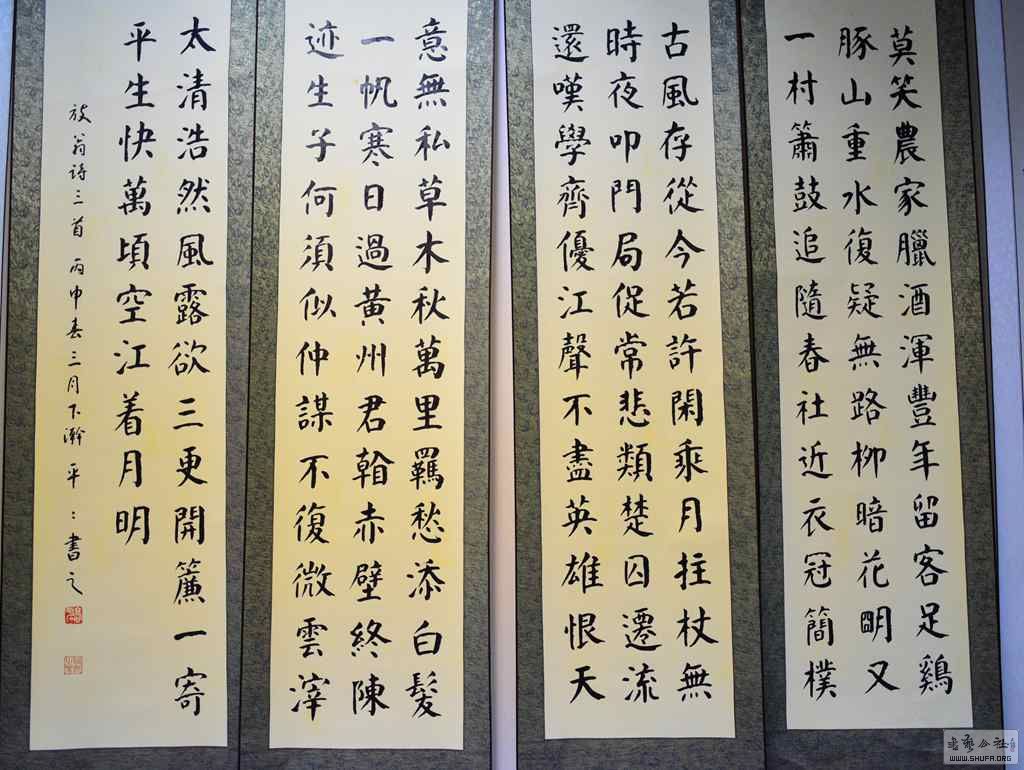 莫笑農家臘酒渾豐年留客足鷄
豚山重水復疑無路柳暗花明又
一村簫鼓追隨春社近衣冠簡樸
古風存從今若許閑乘月拄杖無
時夜叩門局促常悲類楚囚遷流
還嘆學齊優江聲不盡英雄恨天
意無私草木秋萬里羈愁添白髮
一帆寒日過黃州君看赤壁終陳
迹生子何須似仲謀不復微雲滓
太清浩然風露欲三更開簾一寄
平生快萬頃空江着月明
放翁詩三首丙申春三月下瀚平書之
WWW.SHUFA.ORG